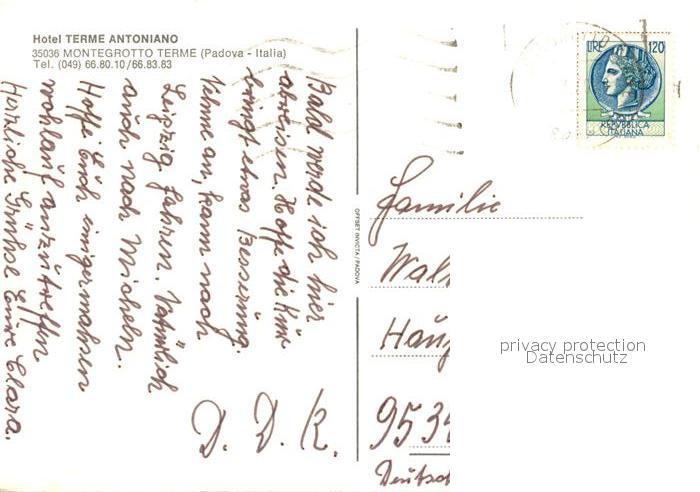 Hotel TERME ANTONIANO
35036 MONTEGROTTO TERME (Padova - Italia)
Tel. (049) 66.80.10/66.83.83
Bald werde ich hier
abreisen. Hoffe die Kur
bringt etwas Besserung.
Nehme an, kann nach
Leipzig fahren. Natürlich
auch nach Micheln.
Hoffe Euch einigermahsen
wohlauf anzutreffen
Herzliche Grühse Eure Clara.
OFFSET INVICTA / PADOVA
LIRE 120
REPUBBLICA
ITALIANA
Familie
Walt
Häuf
9534
D. D. R.
Deutsch
privacy protection
Datenschutz